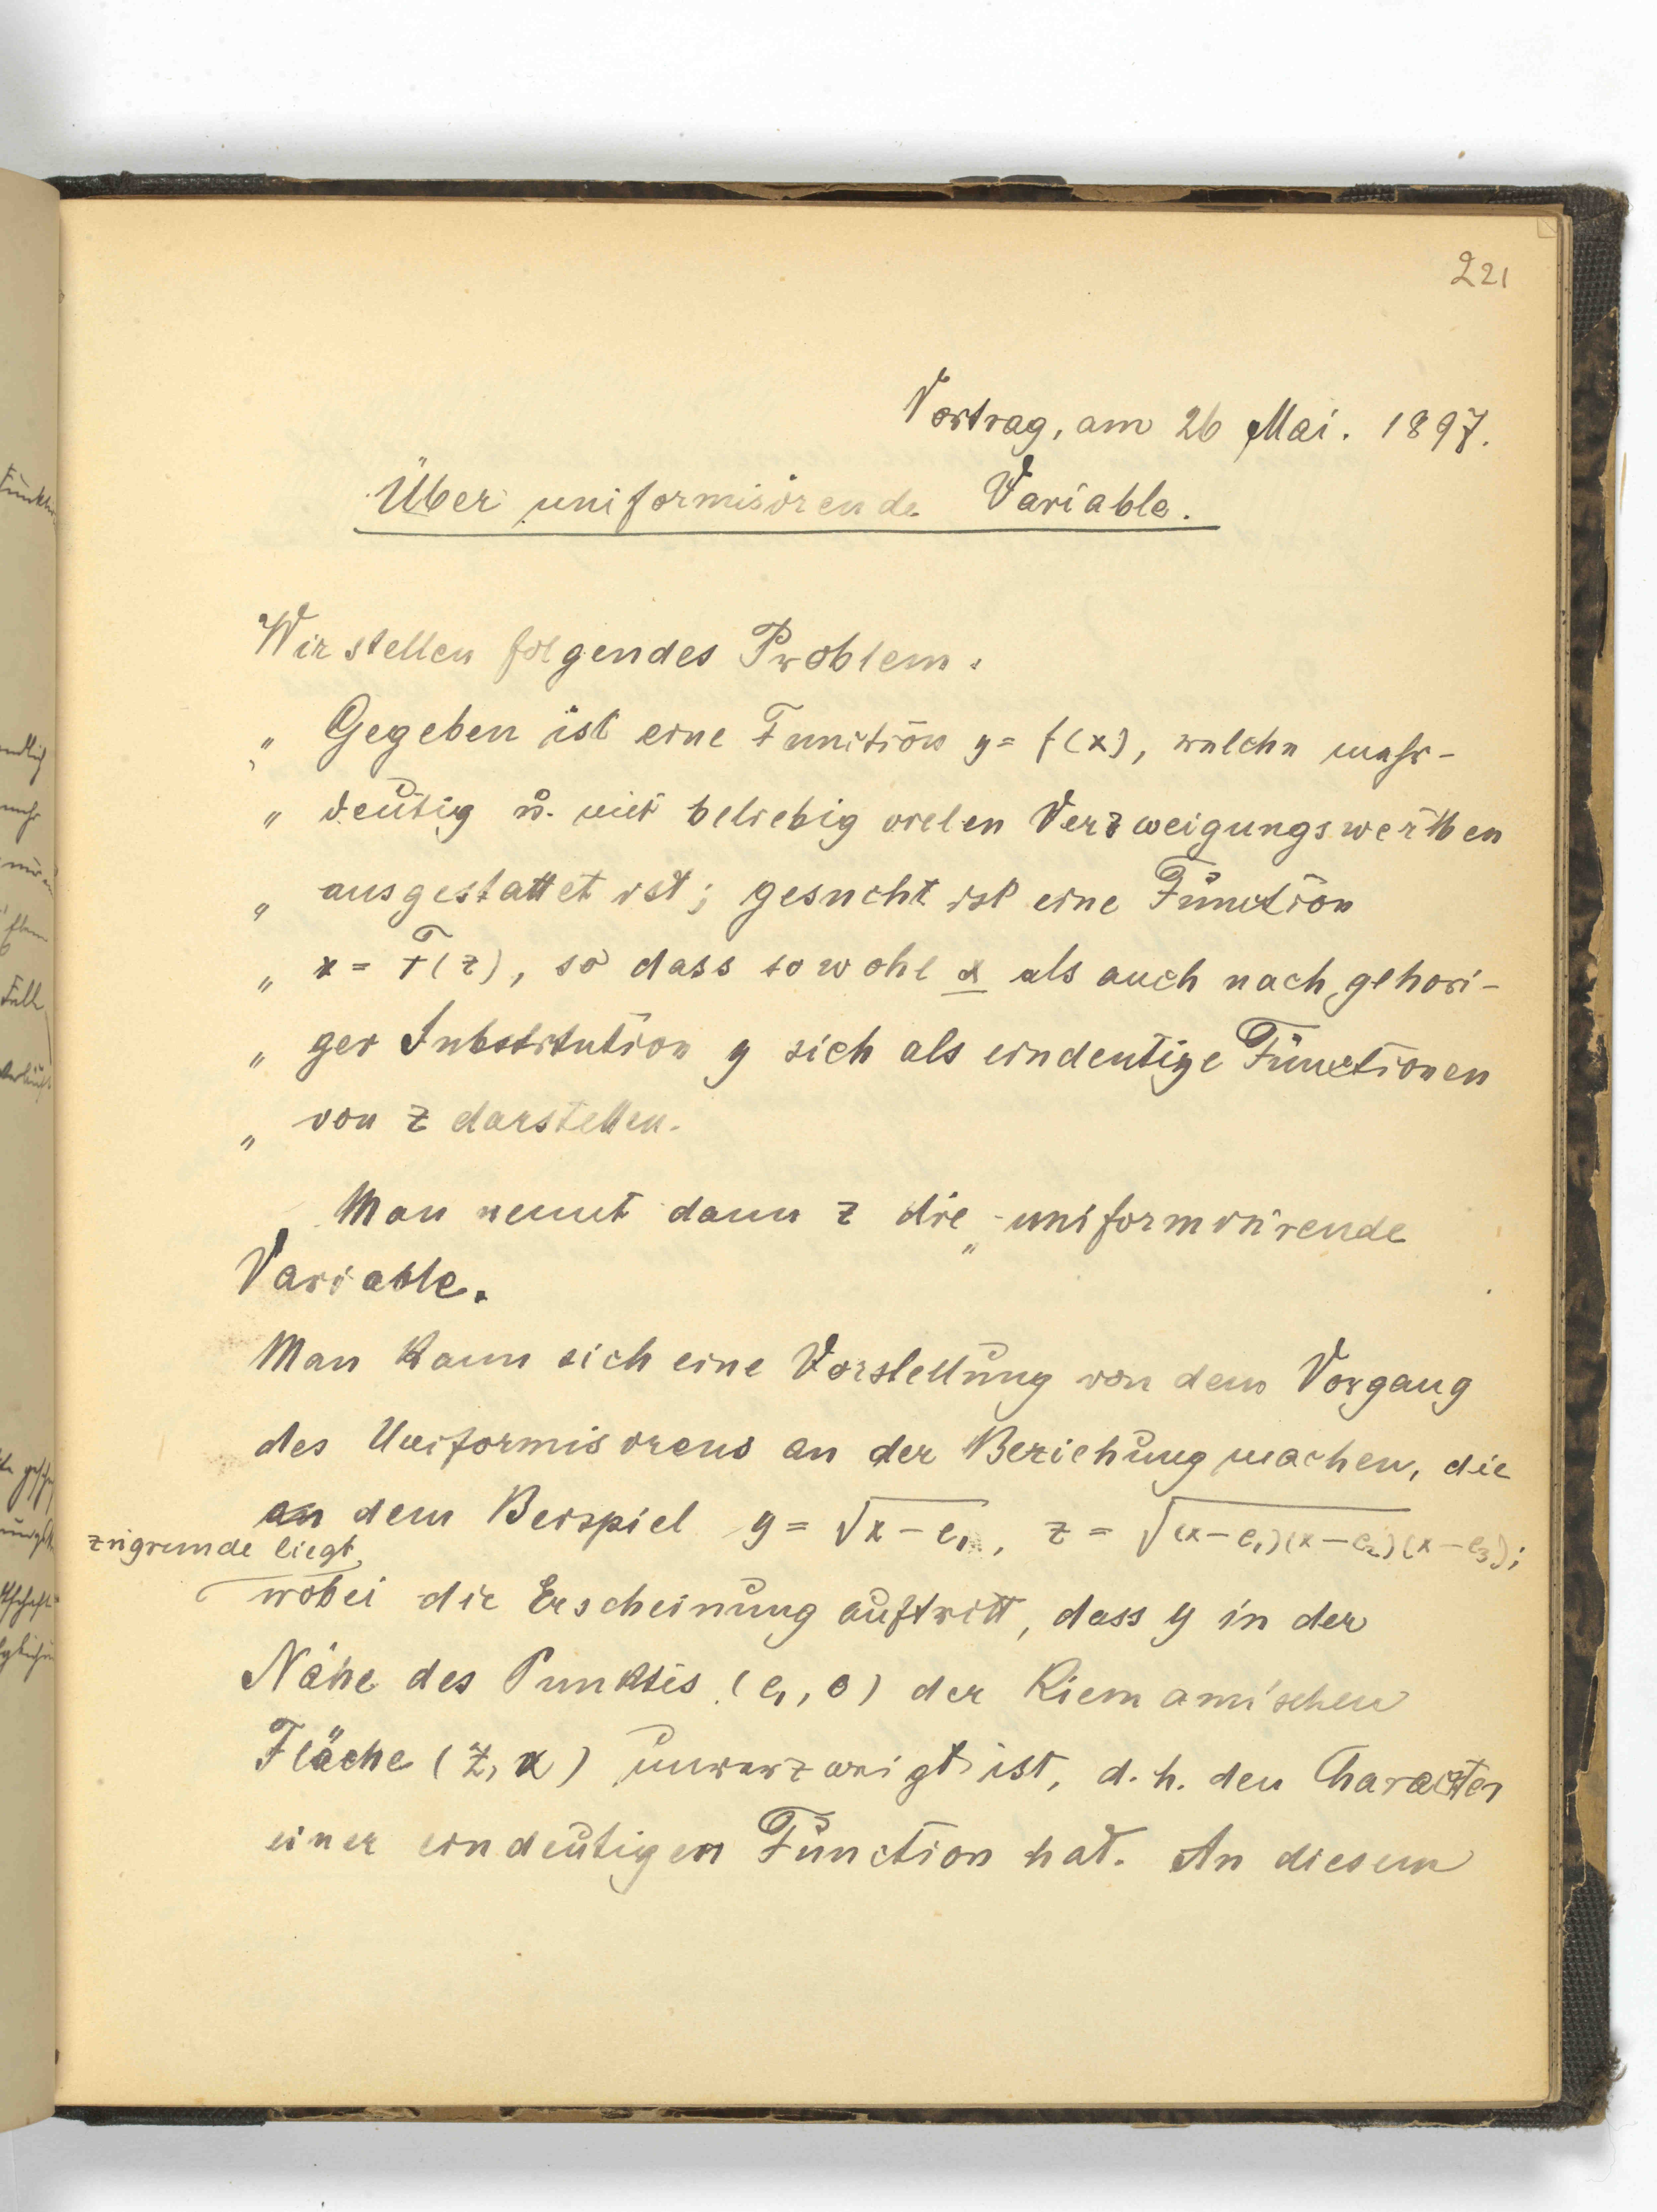 221
Vortrag, am 26 Mai. 1897.
Über uniformisirende Variable.
Wir stellen folgendes Problem.
„ Gegeben ist eine Function y = f(x), welche mehr-
„ deutig u. mit beliebig vielen Verzweigungswerthen
„ ausgestattet ist; gesucht ist eine Function
„ x = F(z), so dass sowohl x als auch nach gehori-
„ ger Substitution y sich als eindeutige Functionen
„ von z darstellen.
Man nennt dann z die „uniformirende
Variable.
Man kann sich eine Vorstellung von dem Vorgang
des Uniformisirens an der Beziehung machen, die
an dem Beispiel y = √x-e₁, z = √(x-e₁)(x-e₂)(x-e₃);
zugrunde liegt,
wobei die Erscheinung auftritt, dass y in der
Nähe des Punktes (e₁, 0) der Riemannischen
Fläche (z, x) unverzweigt ist, d.h. den Character
einer eindeutigen Function hat. An diesem